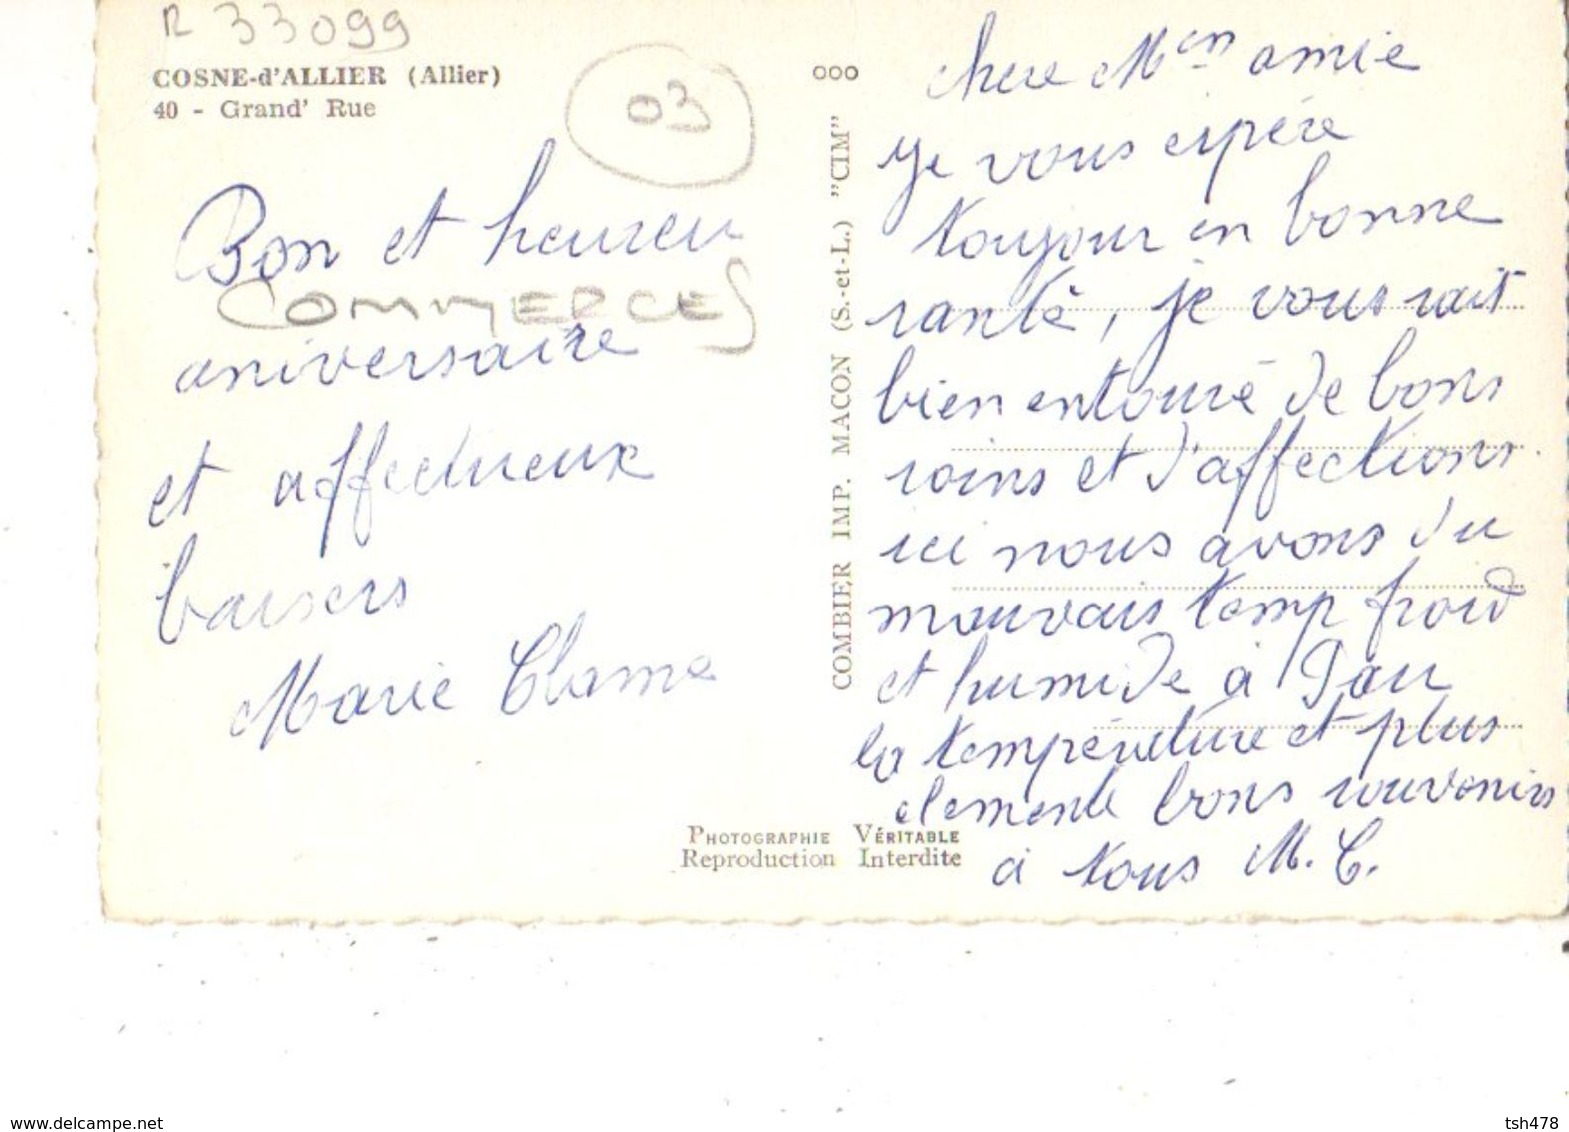 R 33099
COSNE-d'ALLIER (Allier)
40 - Grand' Rue
03
Bon et heureu
COMMERCES
aniversaire
et affectueux
baisers
Marie
ooo
COMBIER IMP. MACON (S.-et-L.) "CIM"
chere amie
je vous espére
toujour en bonne
santé, je vous sait
bien entouré de bons
soins et d'affections
ici nous avons du
mauvais temp froid
et humide à Pau
la température et plus
clemente bons souvenirs
à tous M. C.
PHOTOGRAPHIE VÉRITABLE
Reproduction Interdite
www.delcampe.net
tsh478